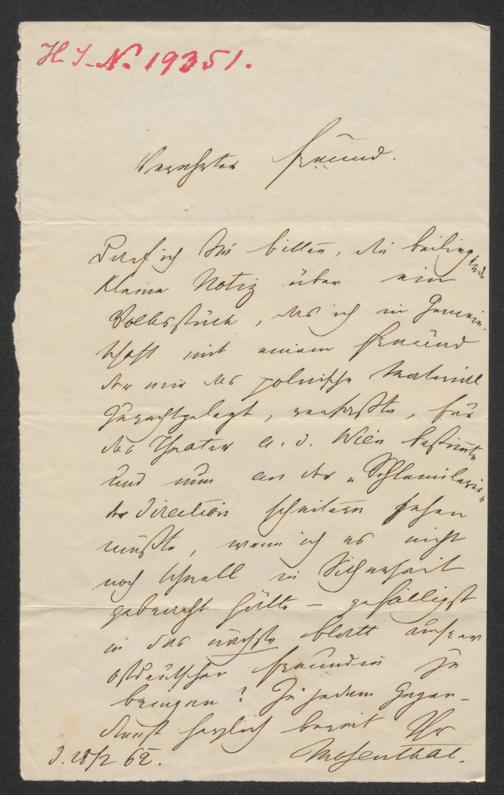 H. I. N. 19351.
Verehrter Freund.
Darf ich Sie bitten, die beiliegende
kleine Notiz über ein
Volksstück, das ich in Gemein-
schaft mit einem Freund
der mir das polnische Material
zurechtgelegt, verfaßte, für
das Theater a. d. Wien bestimmte
und nun an der „Schlamilerie"
der Direction scheitern sehen
müßte, wenn ich es nicht
noch schnell in Sicherheit
gebracht hätte – gefälligst
in das nächste Blatt unserer
ostdeutschen Freundin zu
bringen? Zu jedem Gegen-
dienst herzlich bereit Ihr
Mosenthal.
28/2 62.